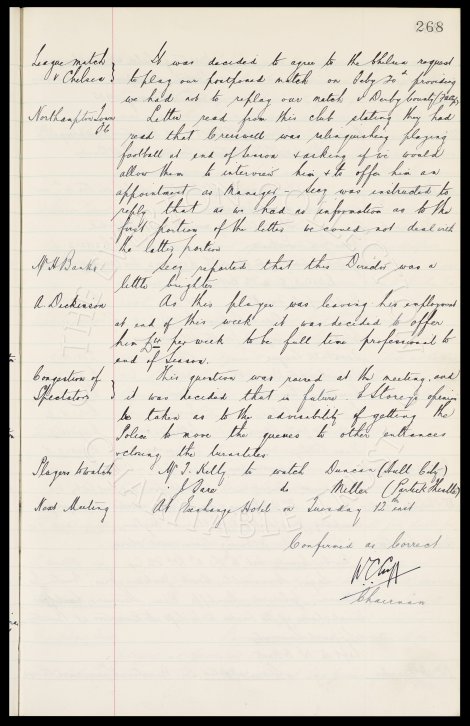 268
League match It was decided to agree to the Chelsea request
v Chelsea } to play our postponed match on Feby 20th providing
we had not to replay our match v Derby County
Northampton Town Letter read from this club stating they had
Fc read that Cresswell was relinquishing playing
football at end of season & asking if we would
allow them to interview him & to offer him an
appointment as Manager – Secy was instructed to
reply that as we had no information as to the
first portion of the letter we could not deal with
the latter portion
Mr H. Banks Secy reported that this Director was a
little brighter
A. Dickinson As this player was leaving his employment
at end of this week it was decided to offer
him per week to be full time professional to
end of season.
Congestion of This question was raised at the meeting, and
Spectators } it was decided that in future opinion
be taken as to the advisability of getting the
Police to move the queues to other entrances
v closing the turnstiles
Players to watch Mr T. Kelly to watch Duncan (Hull City)
" J. do Miller (Partick Thistle)
Next Meeting At Exchange Hotel on Tuesday 12th inst
Confirmed as Correct
W.C. Cuff
Chairman